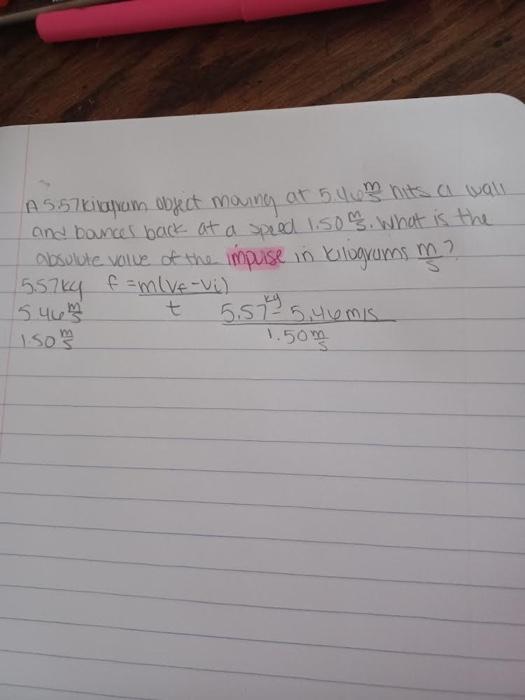 A 5.57 kilogram object moving at 5.46 m/s hits a wall
and bounces back at a speed 1.50 m/s. What is the
absolute value of the impulse in kilograms m/s?
5.57kg f = m(vf - vi) / t
5.46 m/s 5.57kg - 5.46 m/s / 1.50 m/s
1.50 m/s